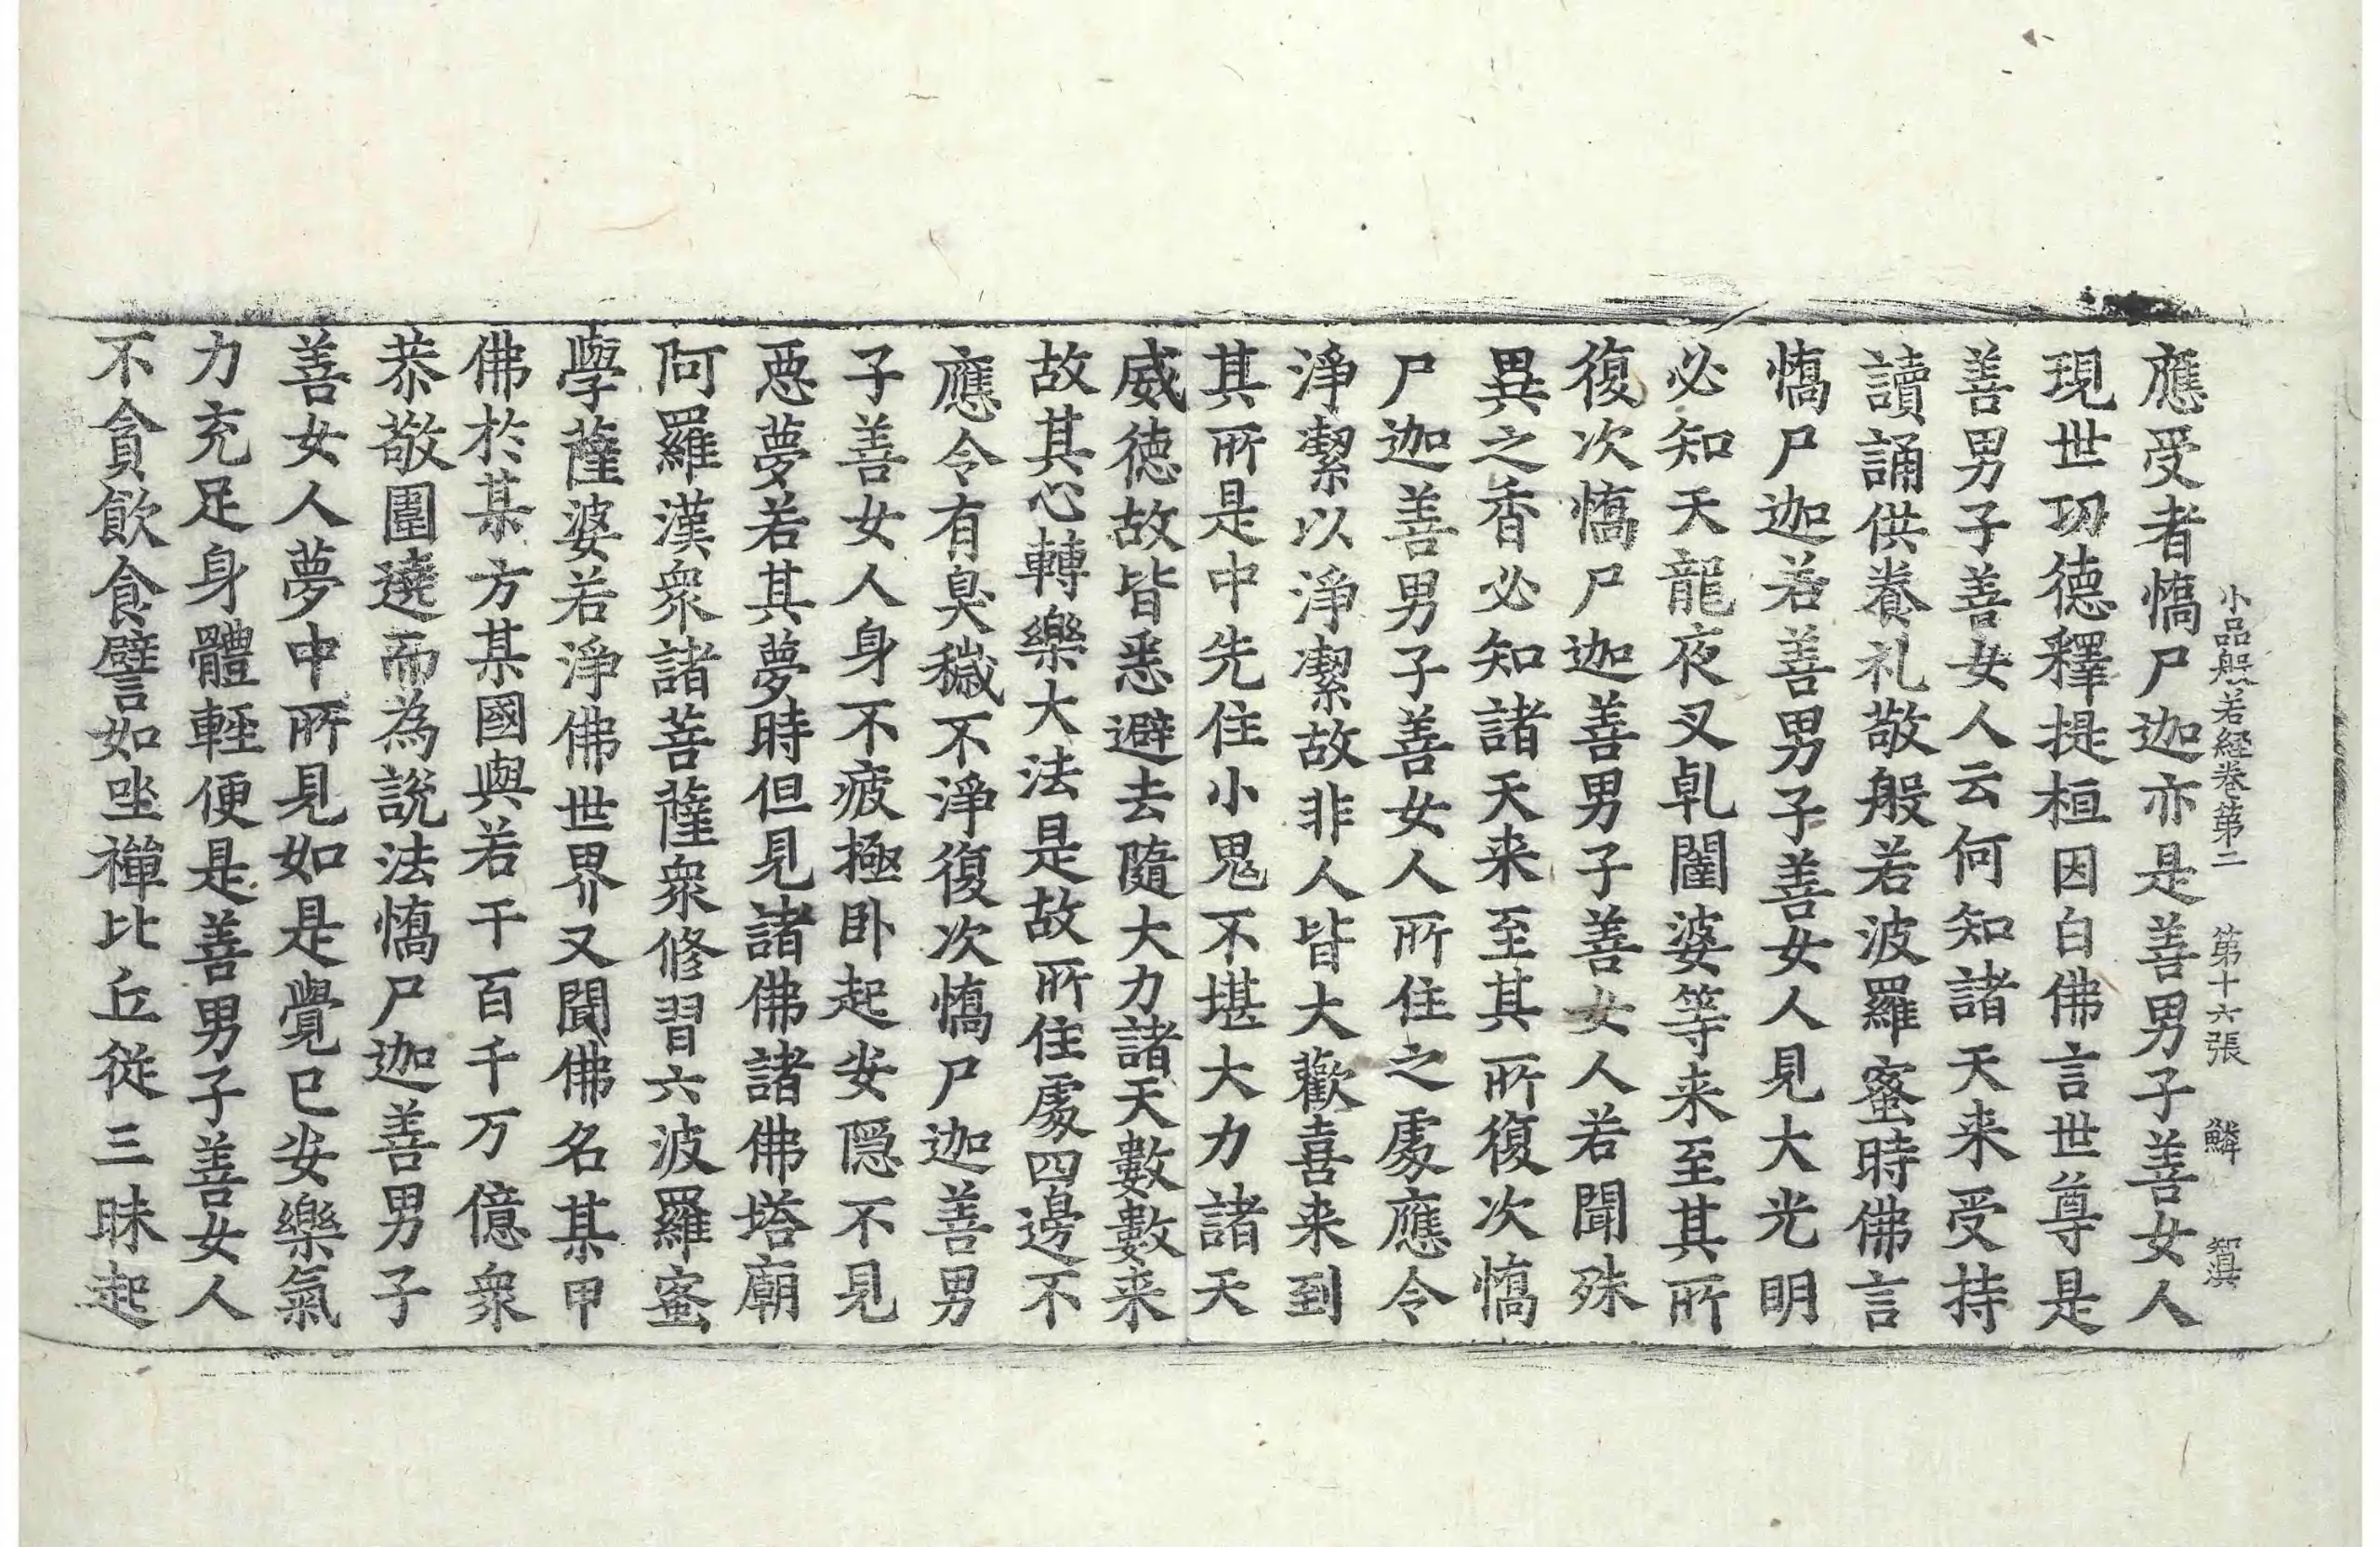 小品般若経卷第二 第十六張 鱗 智淇
應受者憍尸迦亦是善男子善女人
現世功德釋提桓因白佛言世尊是
善男子善女人云何知諸天来受持
讀誦供養礼敬般若波羅蜜時佛言
憍尸迦若善男子善女人見大光明
必知天龍夜叉乹闥婆等来至其所
復次憍尸迦善男子善女人若聞殊
異之香必知諸天来至其所復次憍
尸迦善男子善女人所住之處應令
淨潔以淨潔故非人皆大歡喜来到
其所是中先住小鬼不堪大力諸天
威徳故皆悉避去隨大力諸天數數来
故其心轉樂大法是故所住處四邊不
應令有臭穢不淨復次憍尸迦善男
子善女人身不疲極卧起安隠不見
惡夢若其夢時但見諸佛諸佛塔廟
阿羅漢衆諸菩薩衆修習六波羅蜜
學薩婆若淨佛世界又聞佛名某甲
佛於某方某國與若干百千万億衆
恭敬圍遶而為說法憍尸迦善男子
善女人夢中所見如是覺已安樂氣
力充足身體輕便是善男子善女人
不貪飲食譬如坐禪比丘從三昧起